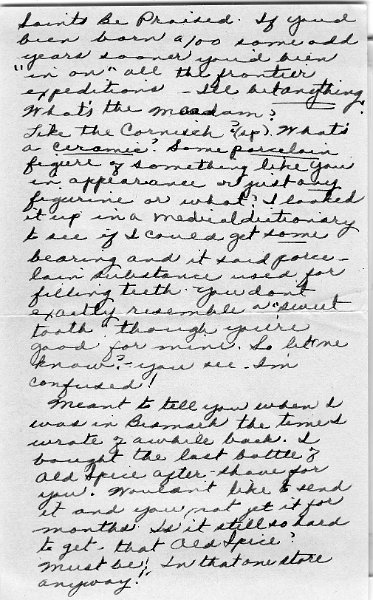 Saints Be Praised. If you'd
been born a/00 some odd
years sooner you'd been
"in on" all the frontier
expeditions - I'll bet anything.
What's the madam?
Like the Cornisch? (sp). What's
a ceramic? Some porcelain
figure of something like you
in appearance or just any
figurine or what? I looked
it up in a medical dictionary
to see if I could get some
bearing and it said porce-
lain substance used for
filling teeth. You don't
exactly resemble a "sweet
tooth" though you're
good for mine. So let me
know? - you see - I'm
confused!
Meant to tell you when I
was in Bismark the time I
wrote of awhile back. I
bought the last bottle of
Old Spice after-shave for
you. Wouldn't like to send
it and you not get it for
months. Is it still so hard
to get - that Old Spice?
Must be! In that one store
anyway!